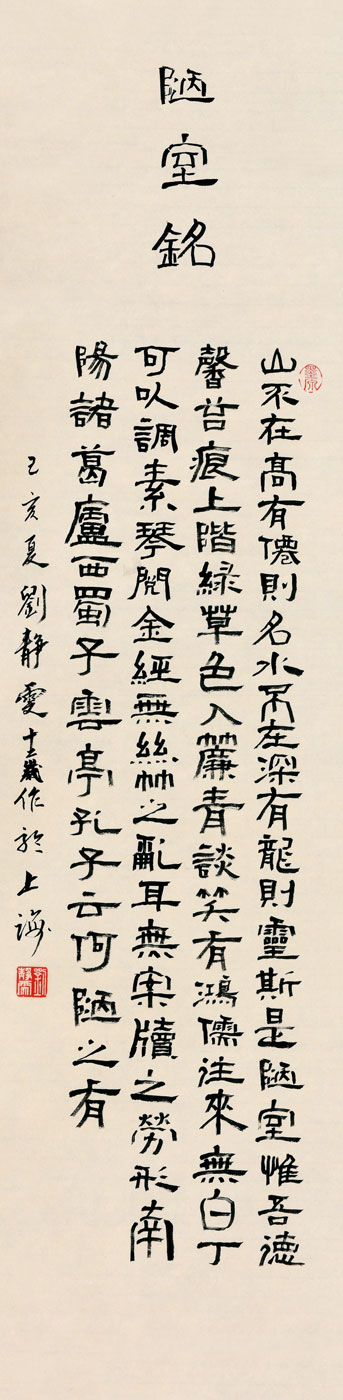 陋室銘
山不在髙有僊則名水不在深有龍則靈斯是陋室惟吾德
馨苔痕上階綠草色入簾青談笑有鴻儒往來無白丁
可以調素琴閱金經無絲竹之亂耳無案牘之勞形南
陽諸葛廬西蜀子雲亭孔子云何陋之有
己亥夏劉静雯十二歲作於上海